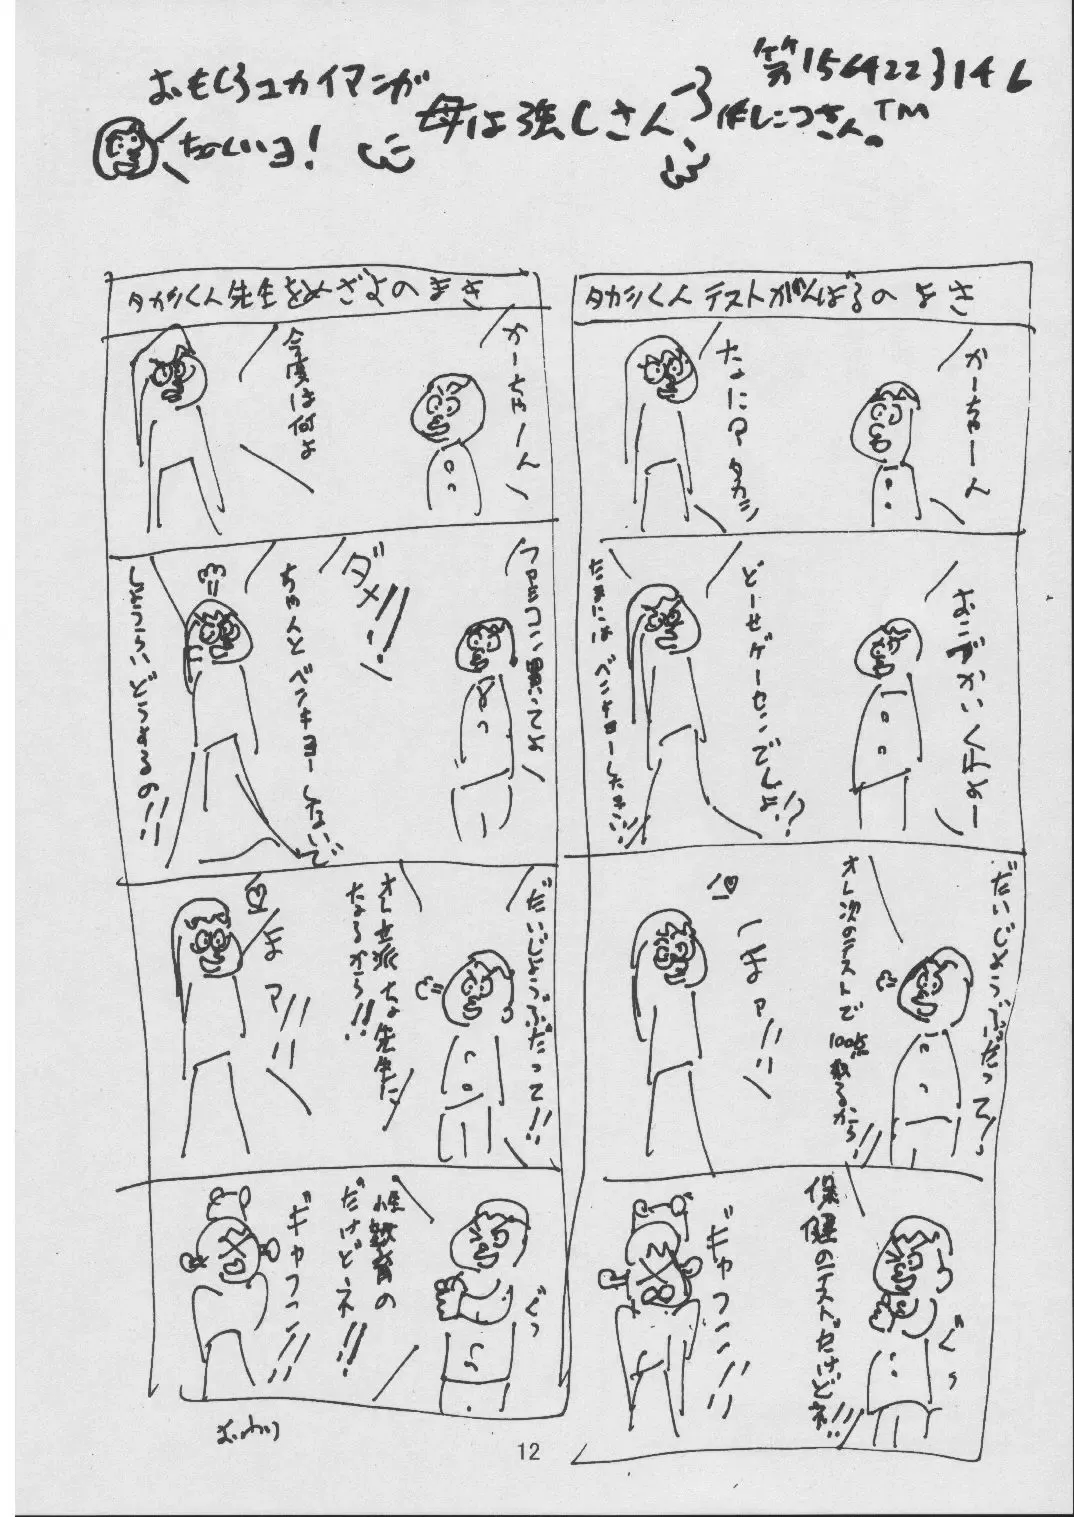 第156422 3146
おもしろユカイマンガ
母は強しさん
作しこつさん。TM
ちーしいヨ!
タカシくん テストがんばるの まき
かーちゃーん
なぁに?タカシ
おこづかいくれよー
どーせゲーセンでしょ!?
たまにはベンキョーしたまえ!!
だいじょうぶだって!!
オレ次のテストで
100点取るから!!
まァ!!!
保健のテストだけどネ!!!
ぐっ
ギャフン!!!
タカシくん先生をめざすの まき
かーちゃーん
今度は何よ
ファミコン買ってよ
ダメ!!!
ちゃんとベンキョーしないで
しょうらいどうするの!!!
だいじょうぶだって!!
オレ立派な先生に
なるから!!
まァ!!!
性教育の
だけどネ!!!
ぐっ
ギャフン!!!
おわり
12